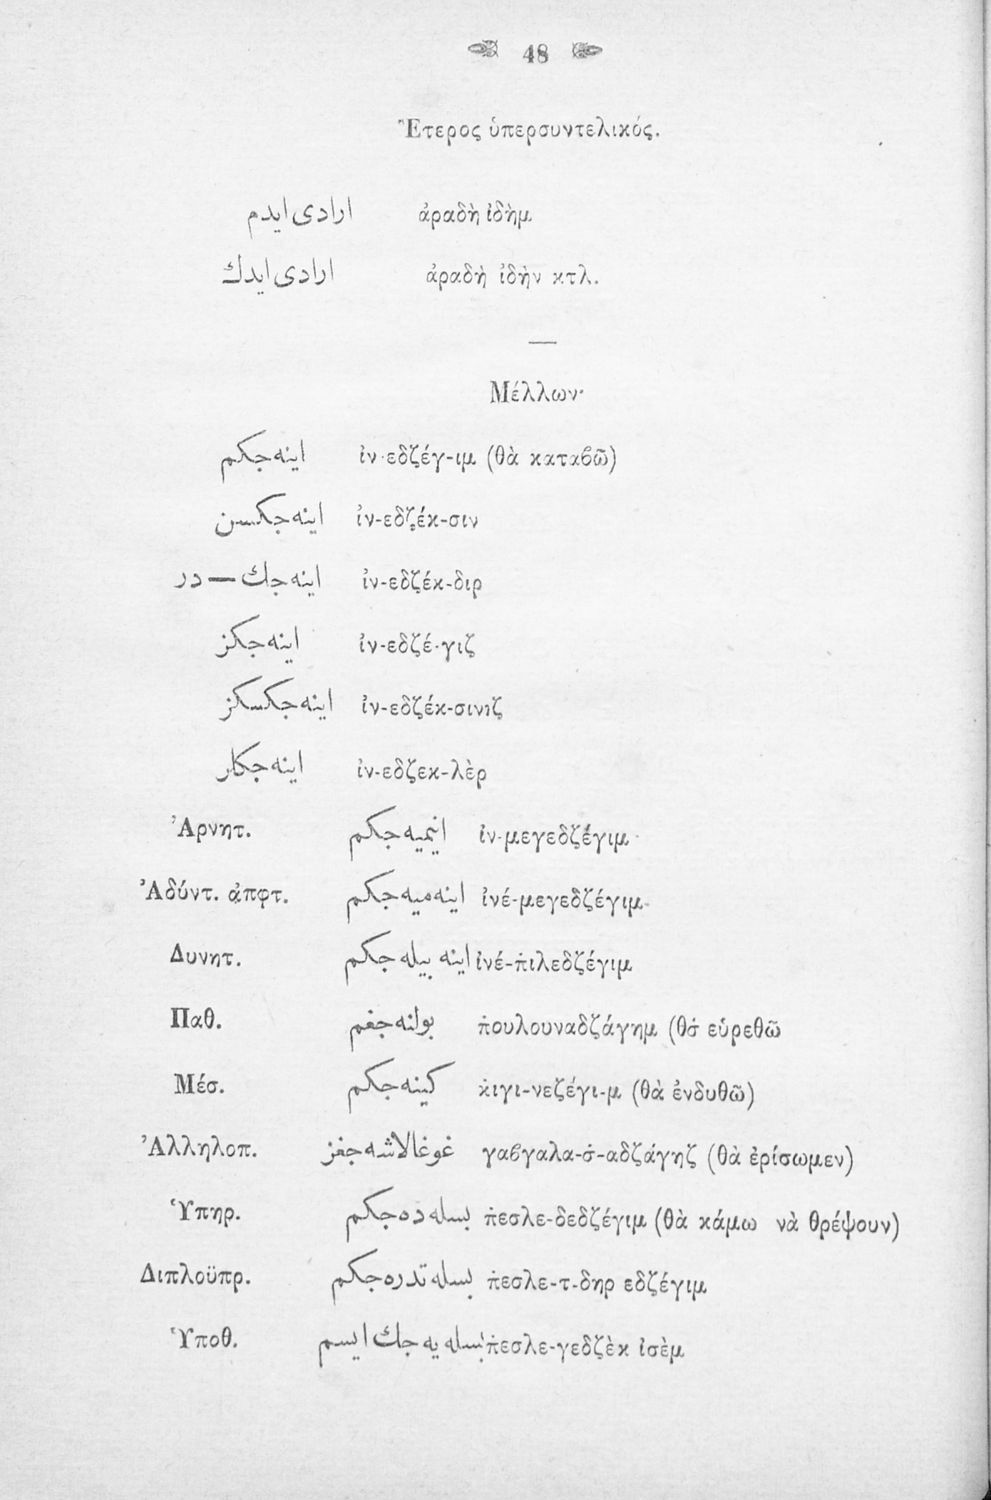 48
Ἕτερος ὑπερσυντελικός.
ارادى ايدم ἀραδὴ ἰδὴμ
ارادى ايدك ἀραδὴ ἰδὴν κτλ.
Μέλλων·
اينه جكم ἰν-εδζέγ-ιμ (θὰ καταβῶ)
اينه جكسن ἰν-εδζέκ-σιν
اينه جك — در ἰν-εδζέκ-διρ
اينه جكز ἰν-εδζέ-γιζ
اينه جكسكز ἰν-εδζέκ-σινιζ
اينه جكلر ἰν-εδζεκ-λὲρ
Ἀρνητ. انميه جكم ἰν-μεγεδζέγιμ
Ἀδύντ. ἀπφτ. اينه ميه جكم ἰνέ-μεγεδζέγιμ
Δυνητ. اينه بيله جكم ἰνέ-π̇ιλεδζέγιμ
Παθ. بولنه جغم π̇ουλουναδζάγημ (θὰ εὑρεθῶ
Μέσ. كينه جكم κ̇ιγι-νεζέγι-μ (θὰ ἐνδυθῶ)
Ἀλληλοπ. غوغالاشه جغز γαβγαλα-σ̇-αδζάγηζ (θὰ ἐρίσωμεν)
Ὑπηρ. بسله ده جكم π̇εσλε-δεδζέγιμ (θὰ κάμω νὰ θρέψουν)
Διπλοϋπρ. بسله تدره جكم π̇εσλε-τ-δηρ εδζέγιμ
Ὑποθ. بسله يه جك ايسم π̇εσλε-γεδζὲκ ἰσὲμ